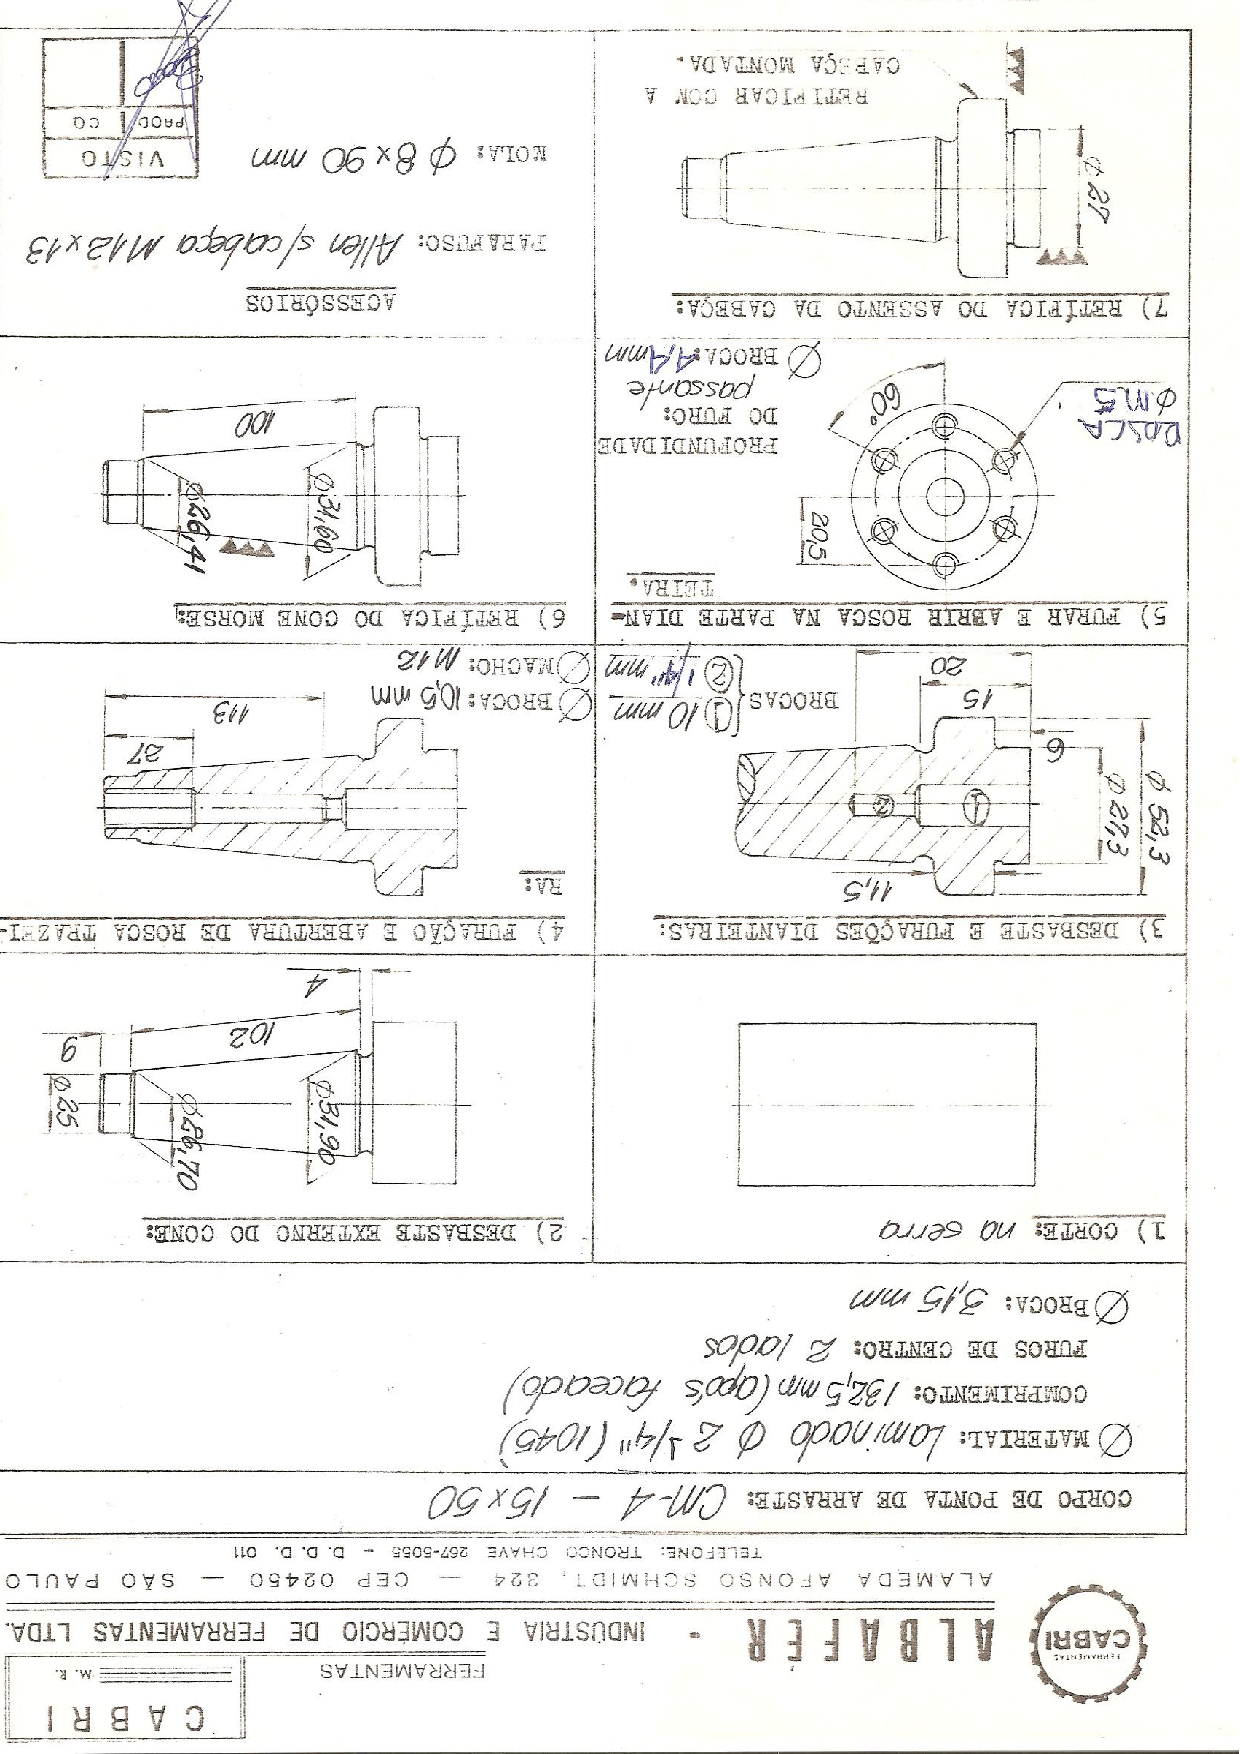 CABRI
M. R.
FERRAMENTAS
CABRI
FERRAMENTAS
ALBAFER - INDÚSTRIA E COMÉRCIO DE FERRAMENTAS LTDA.
ALAMEDA AFONSO SCHMIDT, 324 — CEP 02450 — SÃO PAULO
TELEFONE: TRONCO CHAVE 267-5055 - D. D. D. 011
CORPO DE PONTA DE ARRASTE: CM-4 - 15x50
Ø MATERIAL: Laminado Ø 2 1/4" (1045)
COMPRIMENTO: 132,5 mm (após faceado)
FUROS DE CENTRO: 2 lados
Ø BROCA: 3,15 mm
1) CORTE: na serra
2) DESBASTE EXTERNO DO CONE:
Ø 31,90
Ø 26,70
Ø 25
102
9
4
3) DESBASTE E FURAÇÕES DIANTEIRAS:
11,5
Ø 52,3
Ø 27,3
1
2
6
15
20
BROCAS
1 10 mm
2 1/4" mm
4) FURAÇÃO E ABERTURA DE ROSCA TRAZEI-
RA:
27
113
Ø BROCA: 10,5 mm
Ø MACHO: M12
5) FURAR E ABRIR ROSCA NA PARTE DIAN-
TEIRA.
20,5
60°
ROSCA
Ø M5
PROFUNDIDADE
DO FURO:
passante
Ø BROCA: 4,4 mm
6) RETÍFICA DO CONE MORSE:
Ø 31,60
Ø 26,41
100
7) RETÍFICA DO ASSENTO DA CABEÇA:
Ø 27
RETIFICAR COM A
CABEÇA MONTADA.
ACESSÓRIOS
PARAFUSO: Allen s/cabeça M12x13
MOLA: Ø 8x90 mm
VISTO
PROD CQ